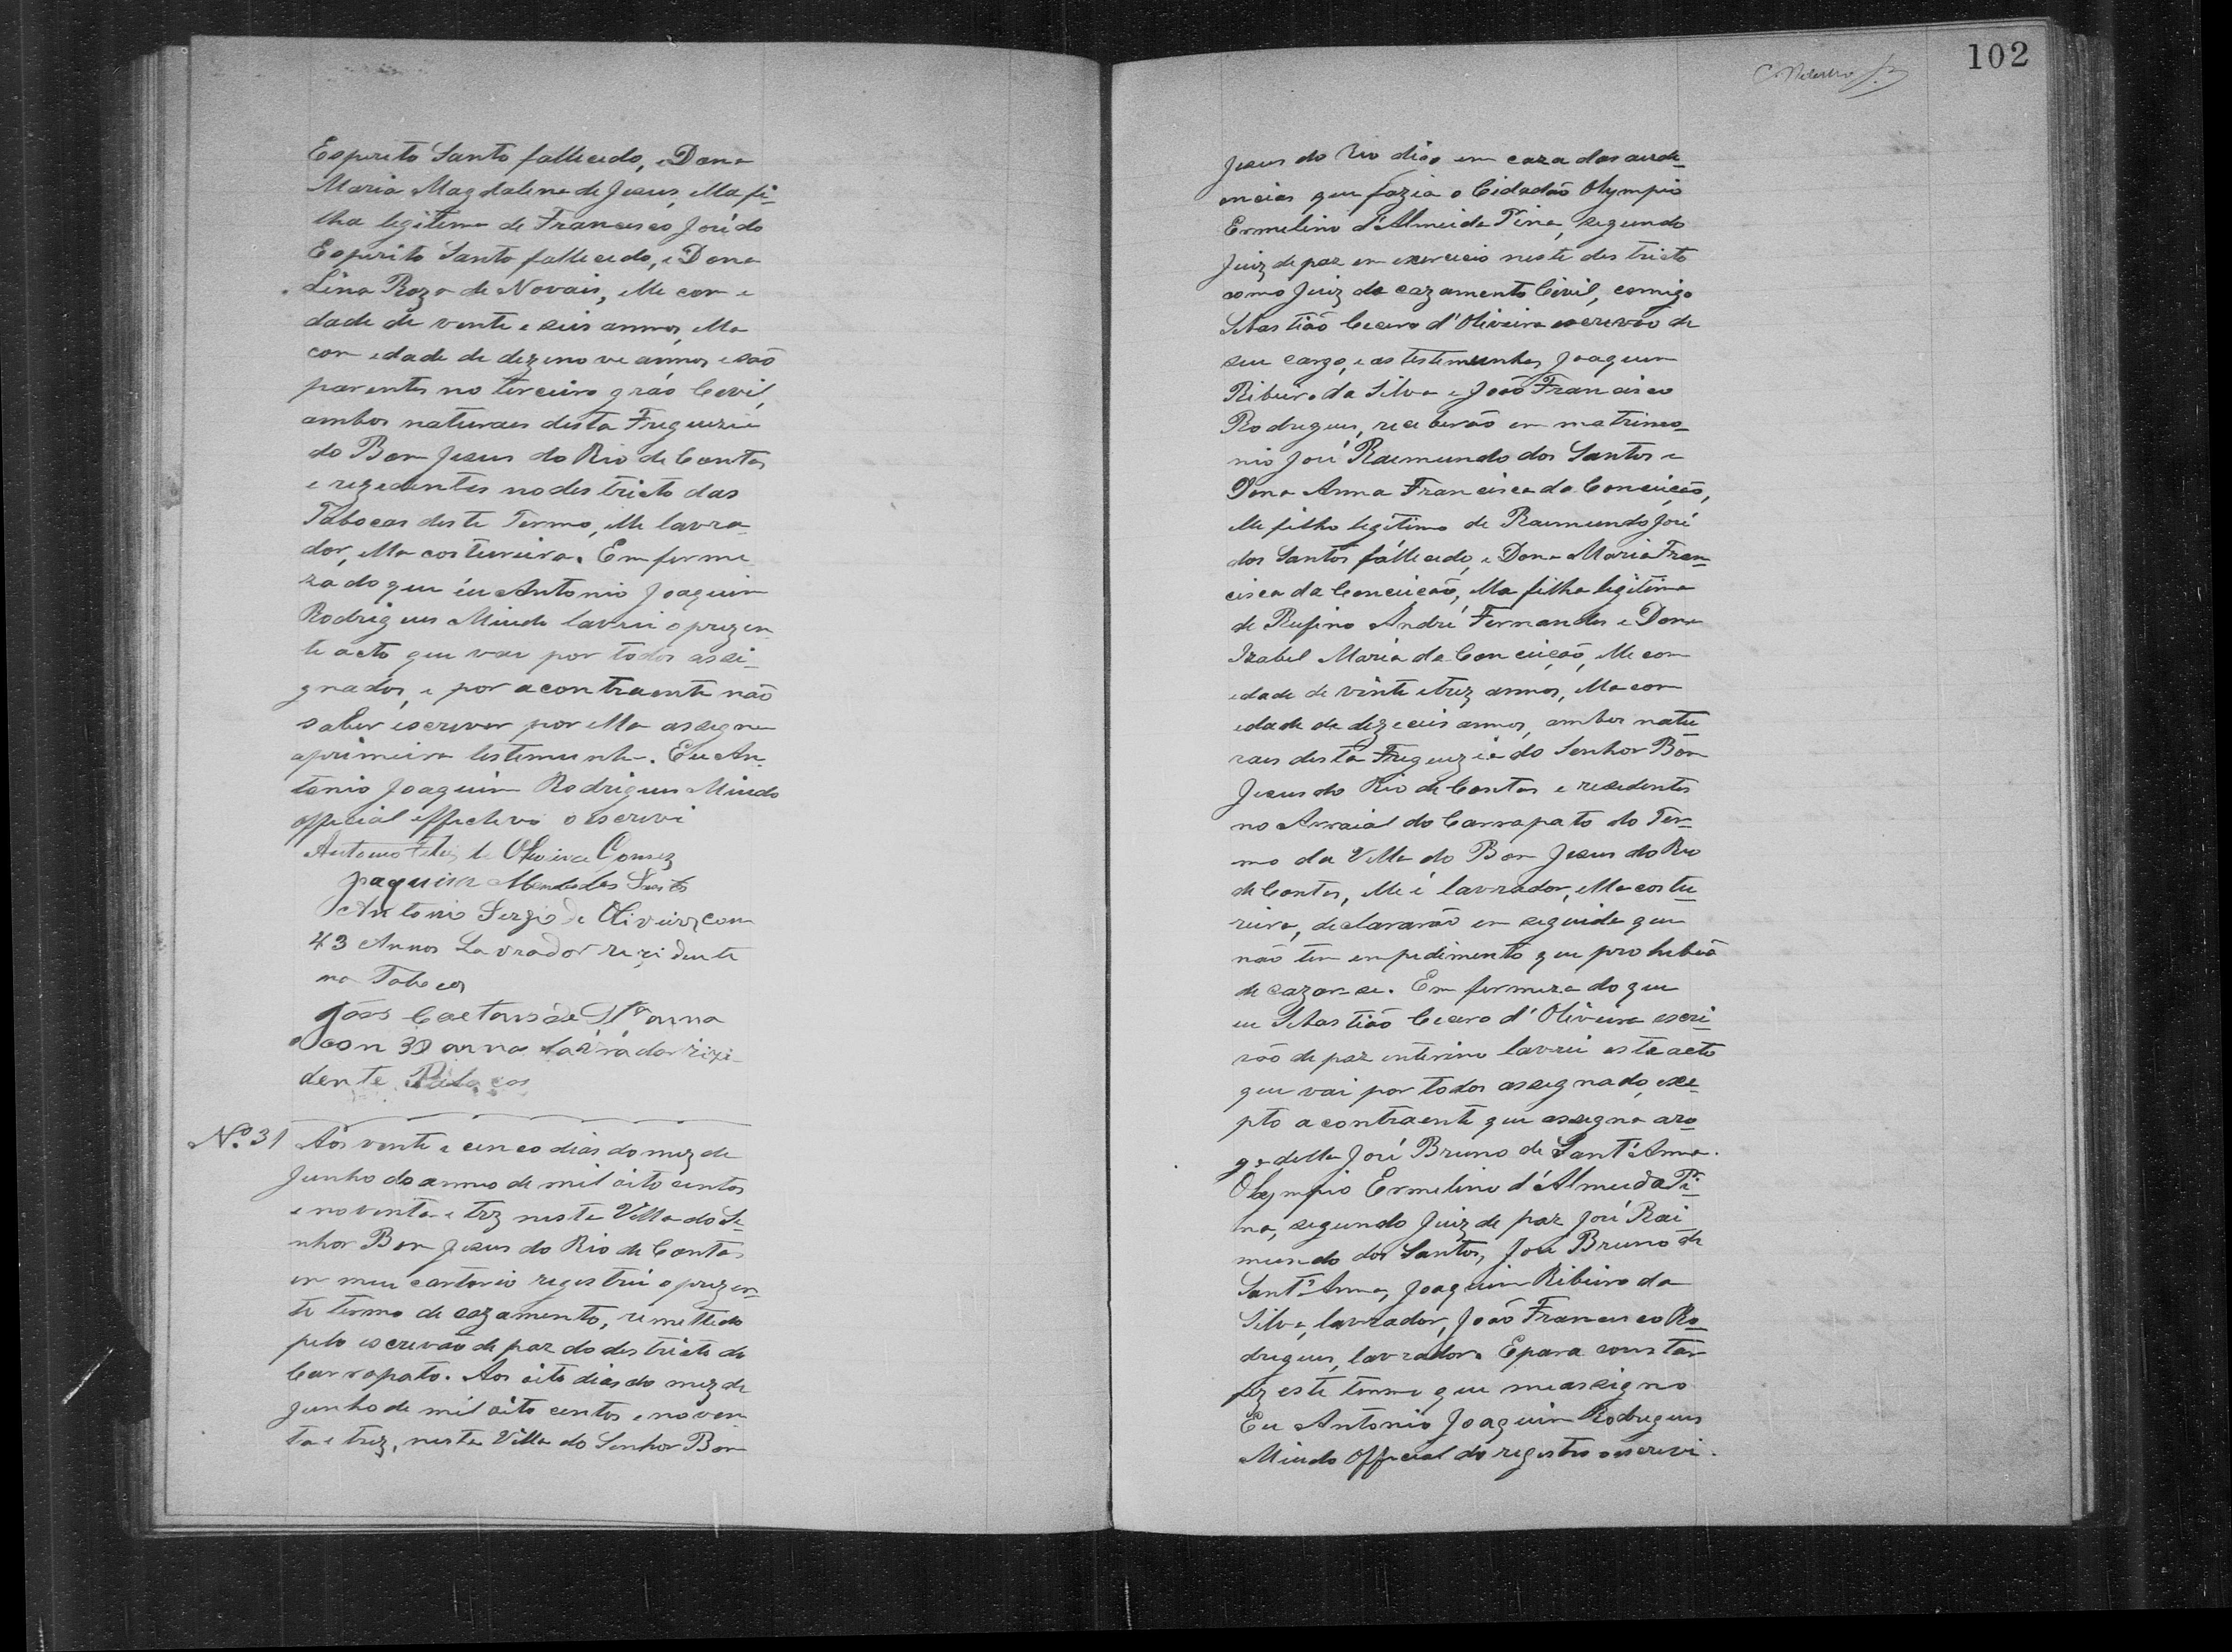 Esperito Santo fallecido, e Dona
Maria Magdalena de Jesus, ella fi-
lha legitima de Francisco José do
Esperito Santo fallecido, e Dona
Lina Roza de Novais, elle com e
dade de vente e seis annos, ella
com edade de dezenove annos e são
parentes no terceiro gráo Cevil,
ambos naturaes desta Freguezia
do Bom Jesus do Rio de Contas
e rezedentes no destricto das
Tabocas deste Termo, elle lavra-
dor, ella costureira. Em firme
za do que eu Antonio Joaquim
Rodrigues Miudo lavrei o prezen
te acto que vae por todos assi-
gnados, e por a contraente não
saber escrever por ella assegna
a primeira testemunha. Eu An
tonio Joaquim Rodrigues Miudo
official effectivo o escrevi
Antonio de Oliveira Gomez
Joaquim Mendes dos Santos
Antonio Sergio de Oliveira com
43 Annos Lavrador rezidente
na Tabocas
João Caetano de Sta anna
con 30 anno lavrador rizi
dente
Nº 31 Aos vente e cenco dias do mez de
Junho do anno de mil oito centos
e noventa e trez nesta Villa do Se-
nhor Bom Jesus do Rio de Contas
em meu cartorio registrei o prezen-
te termo de cazamento, remettedo
pelo escrevão de paz do destricto do
Carrapato. Aos oito dias do mez de
Junho de mil oito centos e noven
ta e trez, nesta Villa do Senhor Bom
102
Jesus do Rio digo em caza das aude-
encias que fazia o Cidadão Olympio
Ermelino d'Almeida Pina, segundo
Juiz de paz em exercicio neste destricto
como Juiz do cazamento Civil, comigo
Sebastião Cicero d'Oliveira escrevão de
seu cargo, e as testemunhas Joaquim
Ribeiro da Silva e João Francisco
Rodrigues, receberão em matrimo-
nio José Raemundo dos Santos e
Dona Anna Francisca da Conceição,
elle filho legitimo de Raemundo José
dos Santos fallecido, e Dona Maria Fran-
cisca da Conceicão, ella filha legitima
de Rufino André Fernandes e Dona
Izabel Maria da Conceição, elle com
edade de vinte e trez annos, ella com
edade de dezeceis annos, ambos natu
raes desta Freguezia do Senhor Bom
Jesus do Rio de Contas e resedentes
no Arraial do Carrapato do Ter-
mo da Villa do Bom Jesus do Rio
de Contas, elle é lavrador, ella costu-
reira, declararão em seguida que
não tem empedimento que prohibeã
de cazar-se. Em firmeza do que
eu Sebastião Cicero d'Oliveira escri-
vão de paz interino lavrei este acto
que vai por todos assegnado, exce-
pto a contraente que assegna aro-
go della José Bruno de Sant'Anna.
Olympio Ermelino d'Almeida Pi-
na, segundo Juiz de paz José Rai
mundo dos Santos, José Bruno de
Sant'Anna, Joaquim Ribeiro da
Silva, lavrador, João Francisco Ro-
drigues, lavrador. E para constar
fiz este termo que me assigno
Eu Antonio Joaquim Rodrigues
Miudo Official do registro o escrevi.